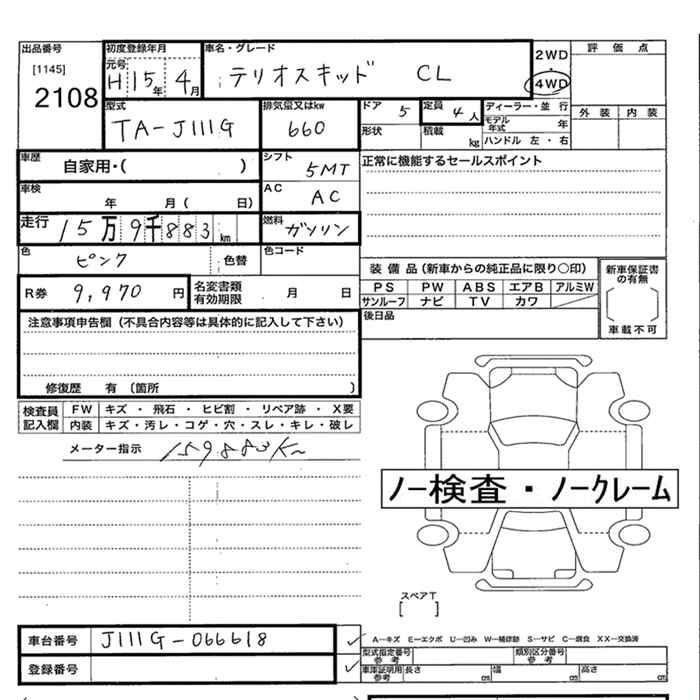 出品番号
[1145]
2108
初度登録年月
元号 H15年 4月
車名・グレード
テリオスキッド CL
2WD
・
4WD
評価点
外装 内装
型式
TA-J111G
排気量又はkw
660
ドア 5
定員 4人
形状
積載 kg
ディーラー・並行
モデル年式 年
ハンドル 左・右
車歴
自家用・( )
シフト
5MT
正常に機能するセールスポイント
車検
年 月( 日)
AC
AC
走行 15万9千883km
燃料
ガソリン
色
ピンク
色替
色コード
R券 9,970円
名変書類有効期限 月 日
装備品(新車からの純正品に限り○印)
PS PW ABS エアB アルミW
サンルーフ ナビ TV カワ
新車保証書の有無
[ ]
車載不可
後日品
注意事項申告欄(不具合内容等は具体的に記入して下さい)
修復歴 有 (箇所 )
検査員記入欄
FW キズ・飛石・ヒビ割・リペア跡・X要
内装 キズ・汚レ・コゲ・穴・スレ・キレ・破レ
メーター指示 159883K
ノー検査・ノークレーム
スペアT
[ ]
車台番号 J111G-066618
登録番号
A-キズ E-エクボ U-凹み W-補修跡 S-サビ C-腐食 XX-交換済
型式指定番号 参考
類別区分番号 参考
車庫証明用 参考 長さ cm 幅 cm 高さ cm